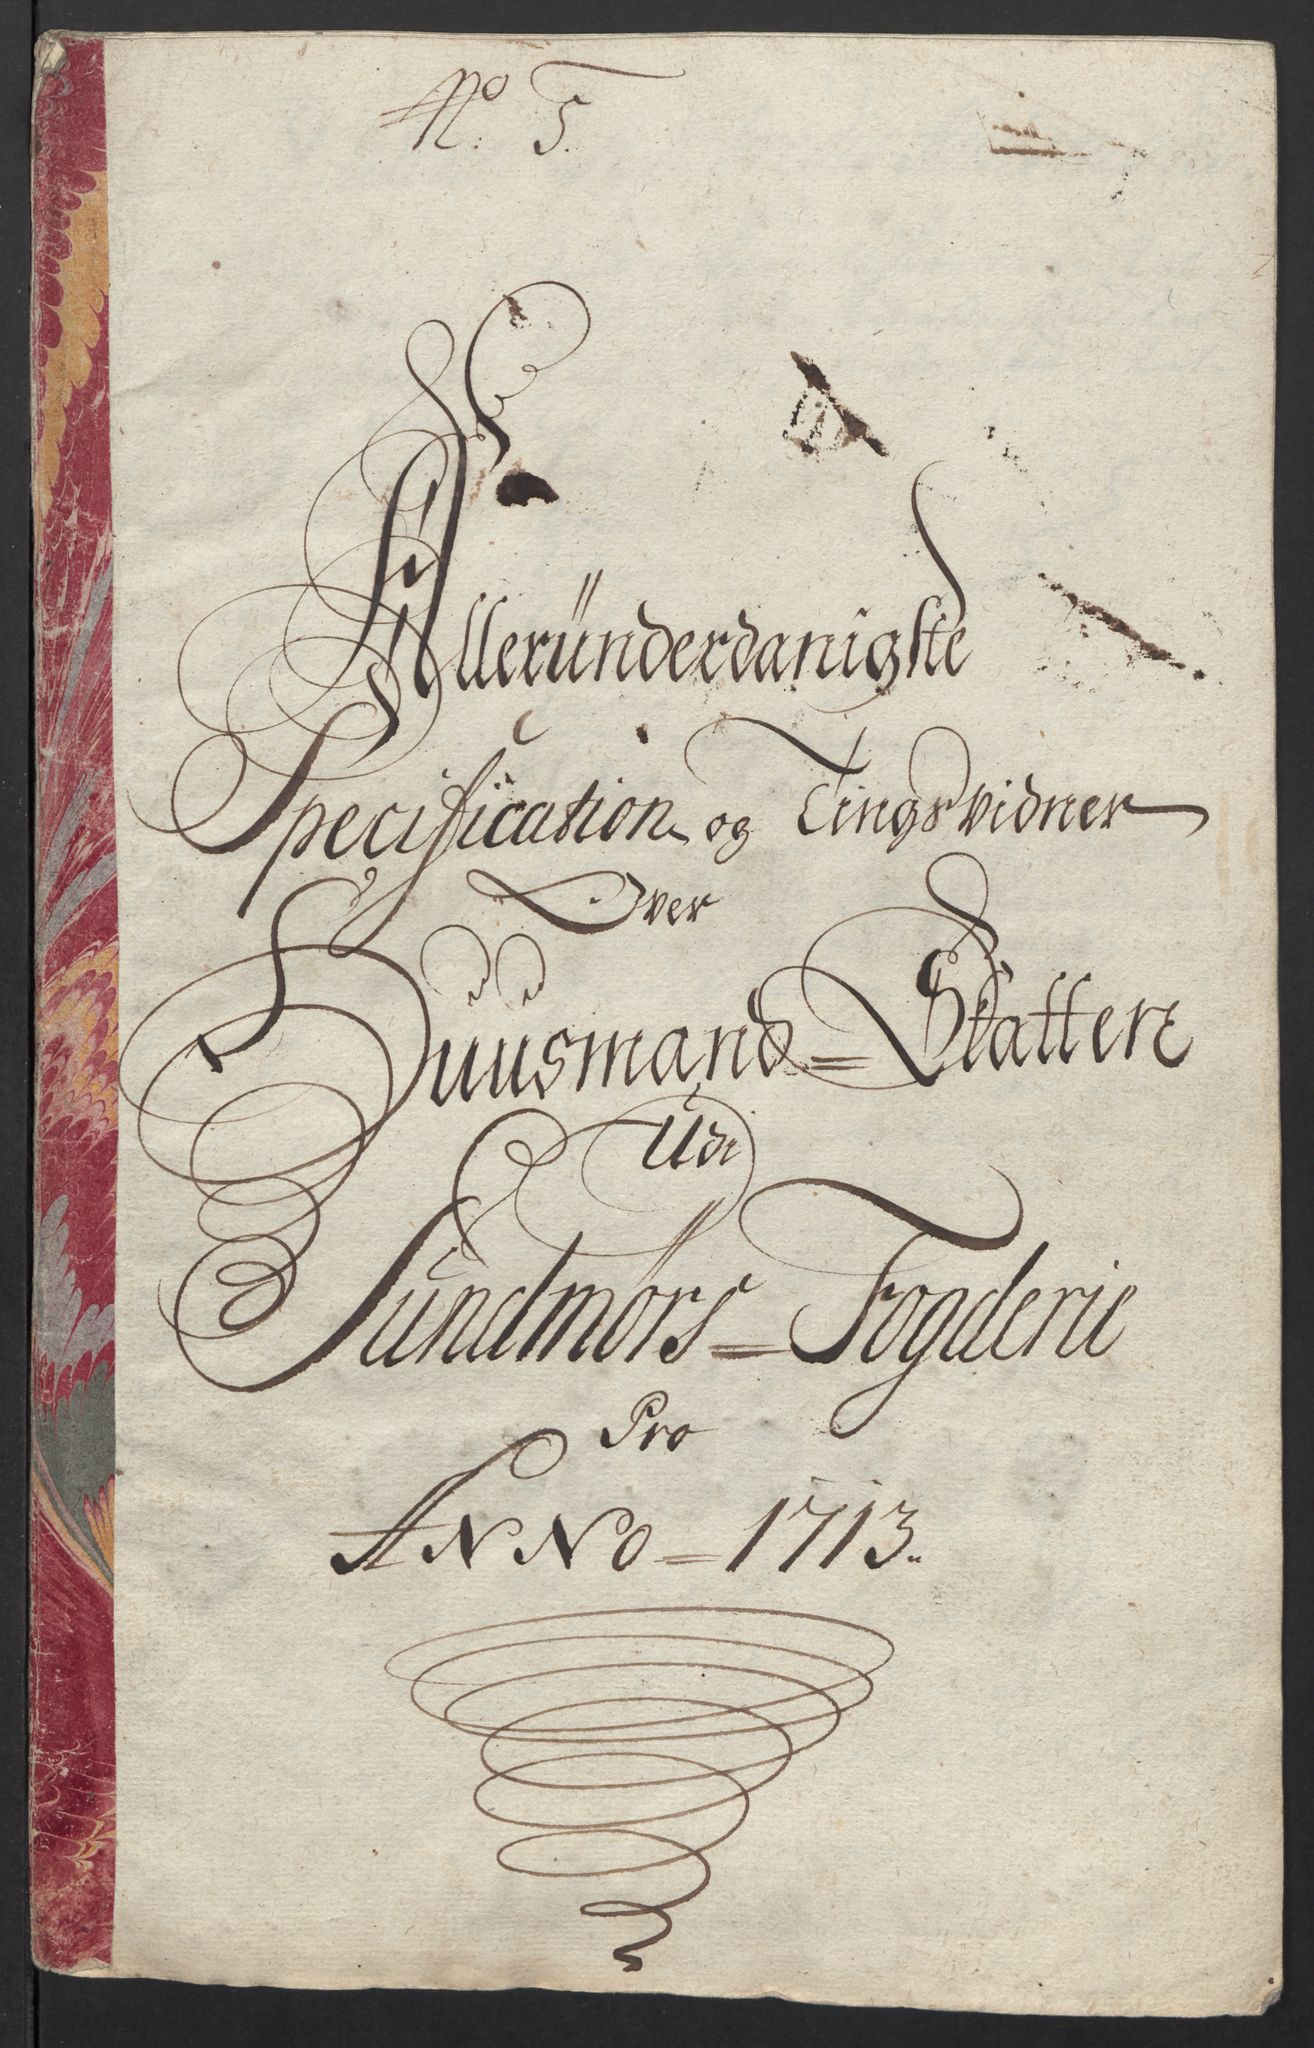 No. 5.
Alleründerdanigste
Specification og Tingsvidner
Over
Huusmand=Skatten
Udi
Sundmörs=Fogderie
Pro
ANNO=1713.